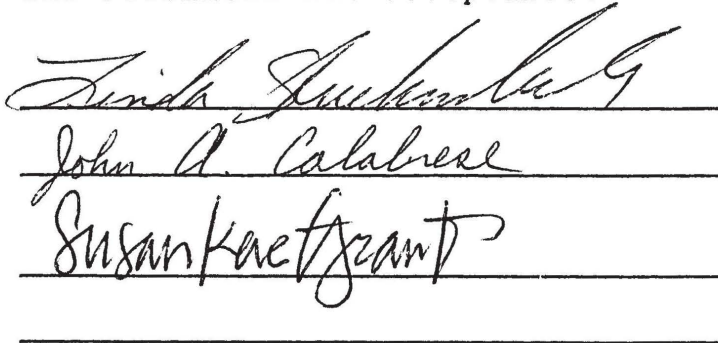 Linda
John A. Calabrese
Susan Kae Grant